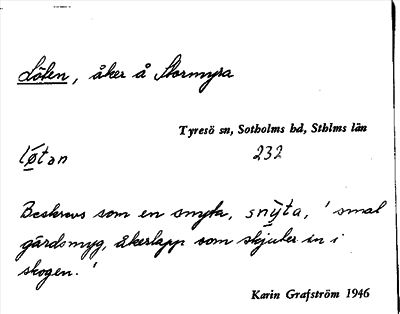 Löten, åker å Stormyra
Tyresö sn, Sotholms hd, Sthlms län
232
lø̄tən
Beskrevs som en snyta, snȳta, ' smal
gärdsmyg, åkerlapp som skjuter in i
skogen. '
Karin Grafström 1946